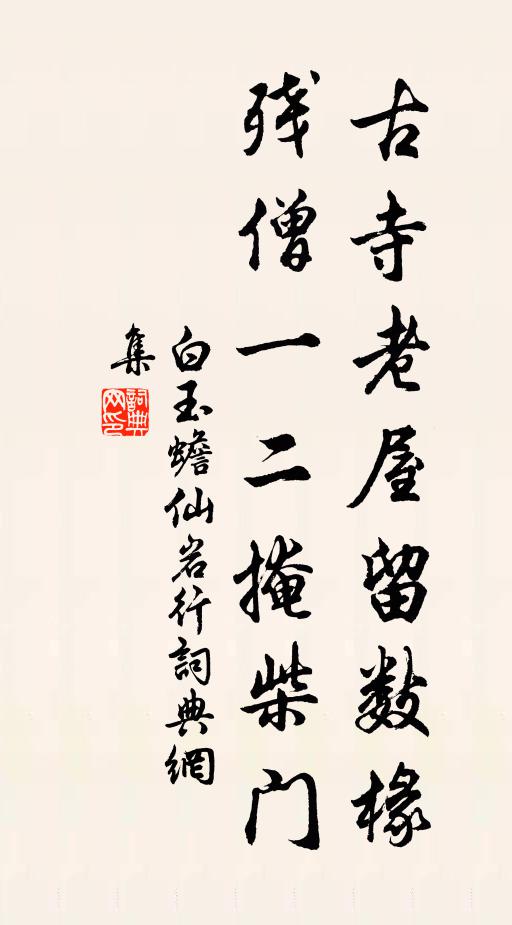 古寺老屋留数椽
残僧一二掩柴门
白玉蟾仙岩行詞典網
集
詞典网印